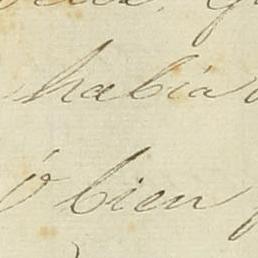 habia
ó bien